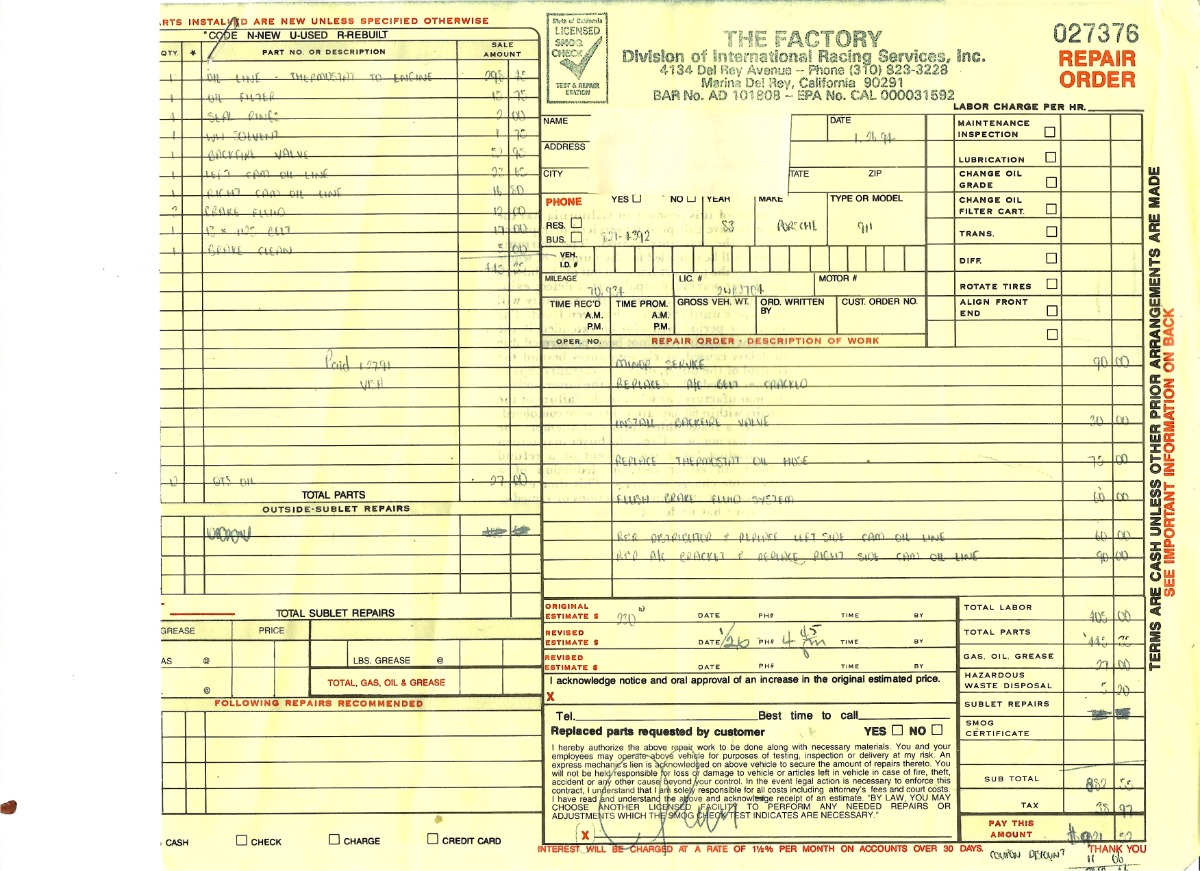 ARTS INSTALLED ARE NEW UNLESS SPECIFIED OTHERWISE
*CODE N-NEW U-USED R-REBUILT
QTY. * PART NO. OR DESCRIPTION SALE AMOUNT
1 OIL LINE - THERMOSTAT TO ENGINE
1 OIL FILTER
SEAL RINGS 2 00
1 WW SOLVENT 1 75
1 BACKFIRE VALVE 52 95
1 LEFT CAM OIL LINE
1 RIGHT CAM OIL LINE 16 80
BRAKE FLUID 12 00
1 BELT 17 00
1 BRAKE CLEAN 5 00
Paid
QTS OIL 27 00
TOTAL PARTS
OUTSIDE-SUBLET REPAIRS
TOTAL SUBLET REPAIRS
GREASE PRICE
AS @ LBS. GREASE @
@ TOTAL, GAS, OIL & GREASE
FOLLOWING REPAIRS RECOMMENDED
CASH CHECK CHARGE CREDIT CARD
State of California
LICENSED
SMOG
CHECK
TEST & REPAIR
STATION
THE FACTORY
Division of International Racing Services, Inc.
4134 Del Rey Avenue – Phone (310) 823-3228
Marina Del Rey, California 90291
BAR No. AD 101808 – EPA No. CAL 000031592
027376
REPAIR
ORDER
LABOR CHARGE PER HR.
NAME DATE
ADDRESS
CITY TATE ZIP
PHONE YES NO YEAR MAKE TYPE OR MODEL
RES.
BUS. 83 PORSCHE 911
VEH.
I.D. #
MILEAGE LIC. # MOTOR #
TIME REC'D A.M. P.M. TIME PROM. A.M. P.M. GROSS VEH. WT. ORD. WRITTEN BY CUST. ORDER NO.
MAINTENANCE INSPECTION
LUBRICATION
CHANGE OIL GRADE
CHANGE OIL FILTER CART.
TRANS.
DIFF.
ROTATE TIRES
ALIGN FRONT END
OPER. NO. REPAIR ORDER - DESCRIPTION OF WORK
MINOR SERVICE 90 00
REPLACE A/C BELT CRACKED
INSTALL BACKFIRE VALVE 30 00
REPLACE THERMOSTAT OIL HOSE 75 00
FLUSH BRAKE FLUID SYSTEM 60 00
R&R DISTRIBUTOR & REPLACE LEFT SIDE CAM OIL LINE 60 00
R&R A/C BRACKET & REPLACE RIGHT SIDE CAM OIL LINE 90 00
ORIGINAL ESTIMATE $ 220 DATE PH# TIME BY
REVISED ESTIMATE $ DATE 1/26 PH# 4 45 pm TIME BY
REVISED ESTIMATE $ DATE PH# TIME BY
I acknowledge notice and oral approval of an increase in the original estimated price.
X
Tel. Best time to call
Replaced parts requested by customer YES NO
I hereby authorize the above repair work to be done along with necessary materials. You and your
employees may operate above vehicle for purposes of testing, inspection or delivery at my risk. An
express mechanic's lien is acknowledged on above vehicle to secure the amount of repairs thereto. You
will not be held responsible for loss or damage to vehicle or articles left in vehicle in case of fire, theft,
accident or any other cause beyond your control. In the event legal action is necessary to enforce this
contract, I understand that I am solely responsible for all costs including attorney's fees and court costs.
I have read and understand the above and acknowledge receipt of an estimate. "BY LAW, YOU MAY
CHOOSE ANOTHER LICENSED FACILITY TO PERFORM ANY NEEDED REPAIRS OR
ADJUSTMENTS WHICH THE SMOG CHECK TEST INDICATES ARE NECESSARY."
X
TOTAL LABOR 405 00
TOTAL PARTS
GAS, OIL, GREASE 27 00
HAZARDOUS WASTE DISPOSAL 5 20
SUBLET REPAIRS
SMOG CERTIFICATE
SUB TOTAL
TAX 38 97
PAY THIS AMOUNT
INTEREST WILL BE CHARGED AT A RATE OF 1½% PER MONTH ON ACCOUNTS OVER 30 DAYS.
THANK YOU
COUPON DISCOUNT
TERMS ARE CASH UNLESS OTHER PRIOR ARRANGEMENTS ARE MADE
SEE IMPORTANT INFORMATION ON BACK